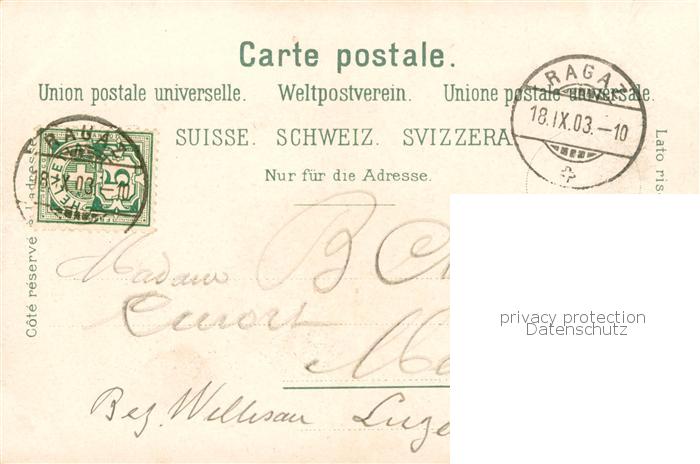 Carte postale.
Union postale universelle. Weltpostverein. Unione postale universale.
SUISSE. SCHWEIZ. SVIZZERA.
Nur für die Adresse.
RAGAZ
18.IX.03.–10
RAGAZ
18.IX.03.–10
HELVETIA
5
Côté réservé à l'adresse
Lato ris
Madame B
Me
Bez. Willisau Luze
privacy protection
Datenschutz